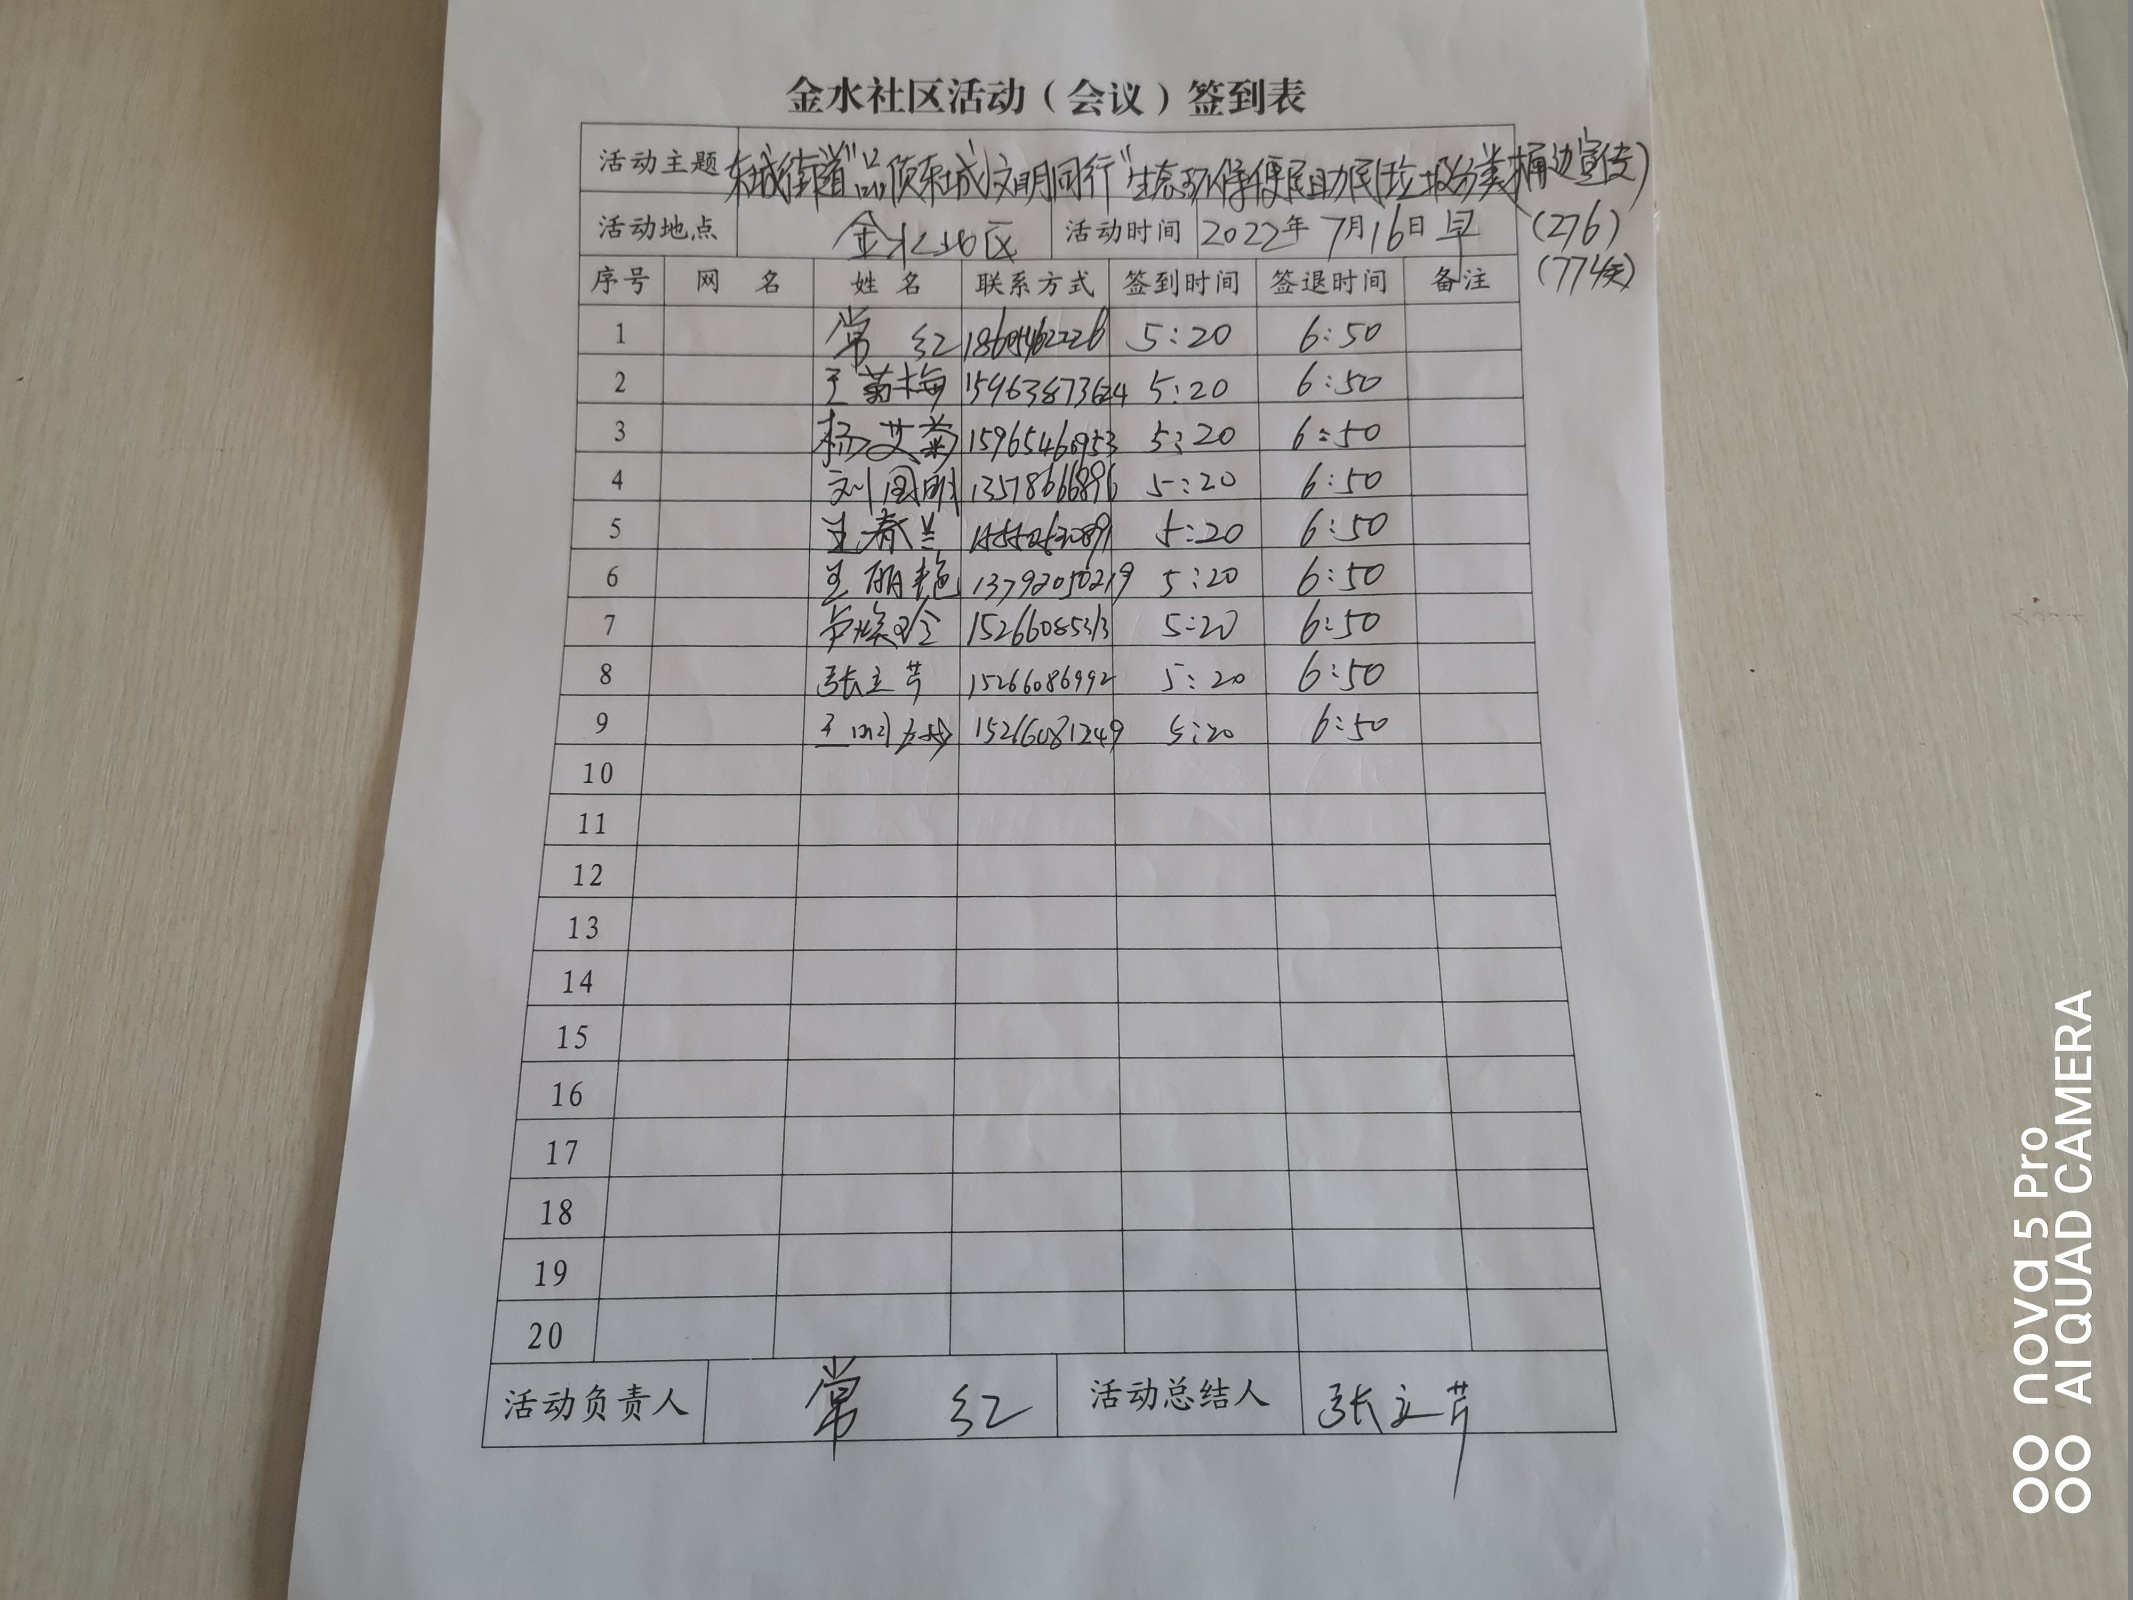 金水社区活动（会议）签到表
活动主题 东城街道"品质东城文明同行"生态环保便民助民(垃圾分类桶边宣传)
活动地点 金水社区 活动时间 2022年7月16日早 (276)
(774天)
序号 网 名 姓 名 联系方式 签到时间 签退时间 备注
1 常红 18605462226 5:20 6:50
2 王菊梅 15963873624 5:20 6:50
3 杨艾菊 15965460953 5:20 6:50
4 刘国明 13578666896 5:20 6:50
5 王春兰 5:20 6:50
6 王丽艳 13792050219 5:20 6:50
7 卢焕珍 15266085313 5:20 6:50
8 张立芹 15266086992 5:20 6:50
9 王 15266081249 5:20 6:50
10
11
12
13
14
15
16
17
18
19
20
活动负责人 常红 活动总结人 张立芹
nova 5 Pro
AI QUAD CAMERA